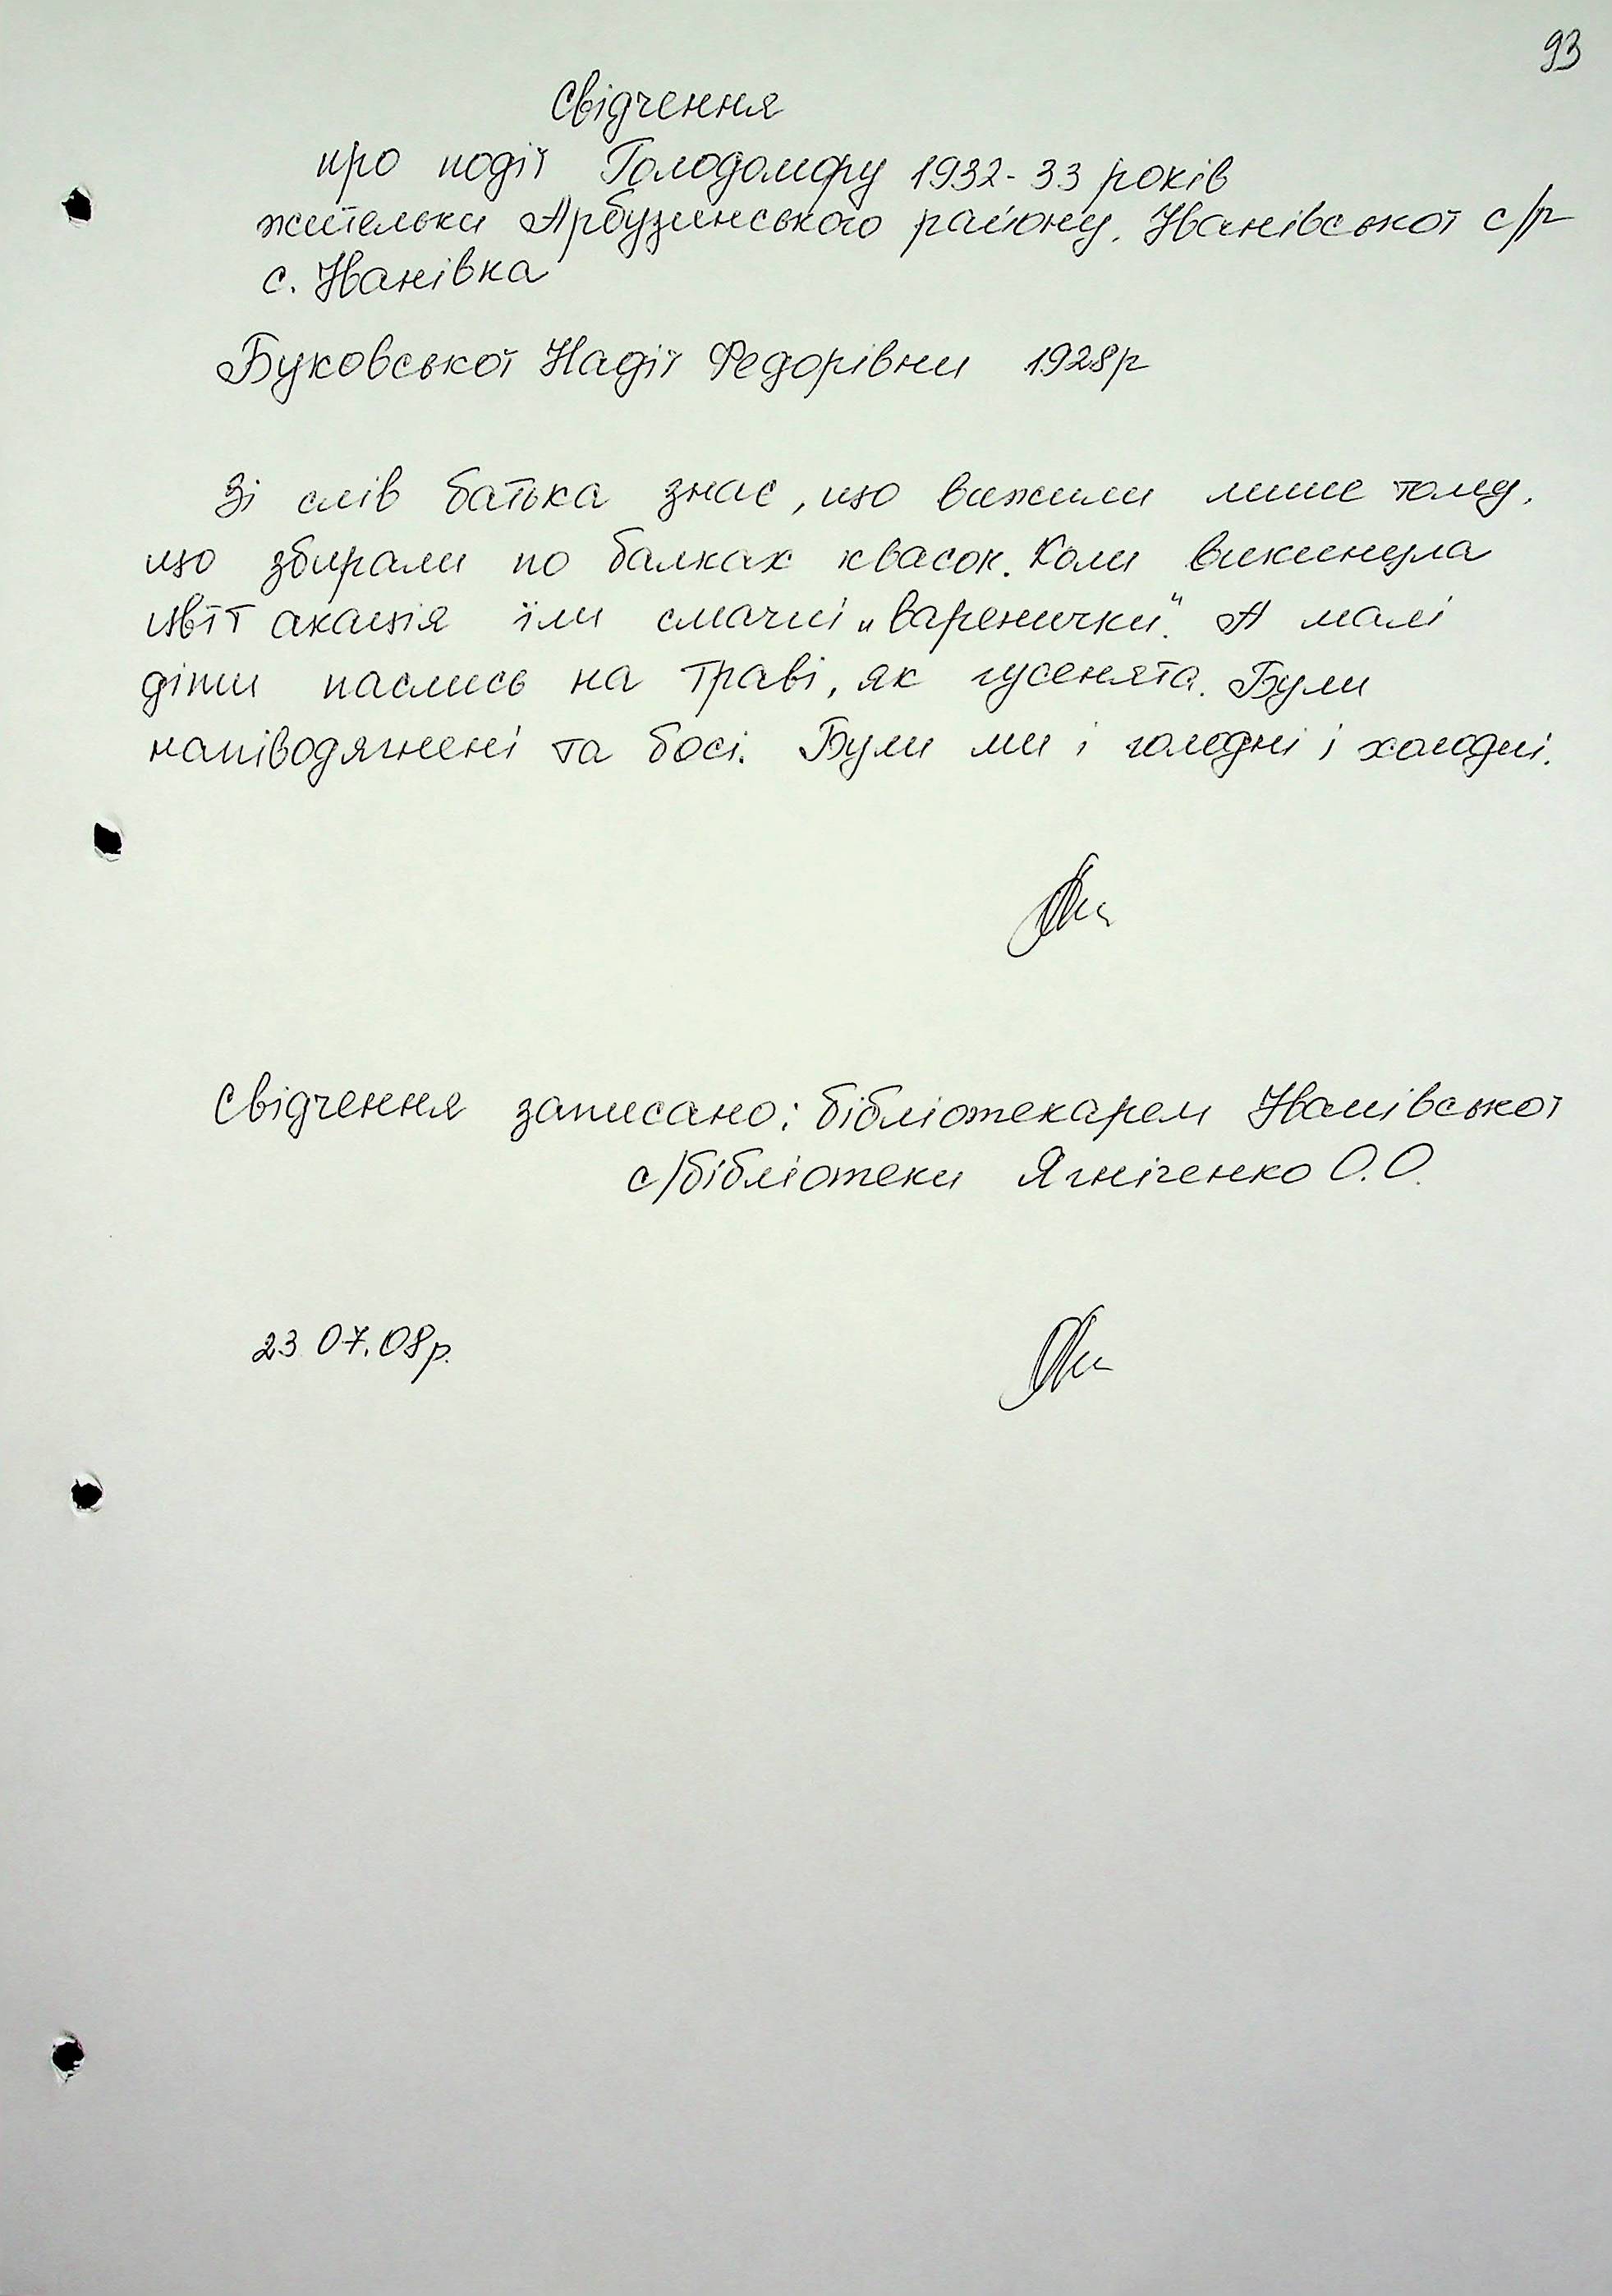 93
Свідчення
про події Голодомору 1932-33 років
жительки Арбузинського району, Іванівської с/р
с. Іванівка
Буковської Надії Федорівни 1928р
Зі слів батька знає, що вижили лише тому,
що збирали по балках квасок. Коли викинула
цвіт акація їли смачні „варенички". А малі
діти паслись на траві, як гусенята. Були
напіводягнені та босі. Були ми і голодні і холодні.
Свідчення записано: бібліотекарем Іванівської
с/бібліотеки Ягніченко О.О.
23.07.08р.